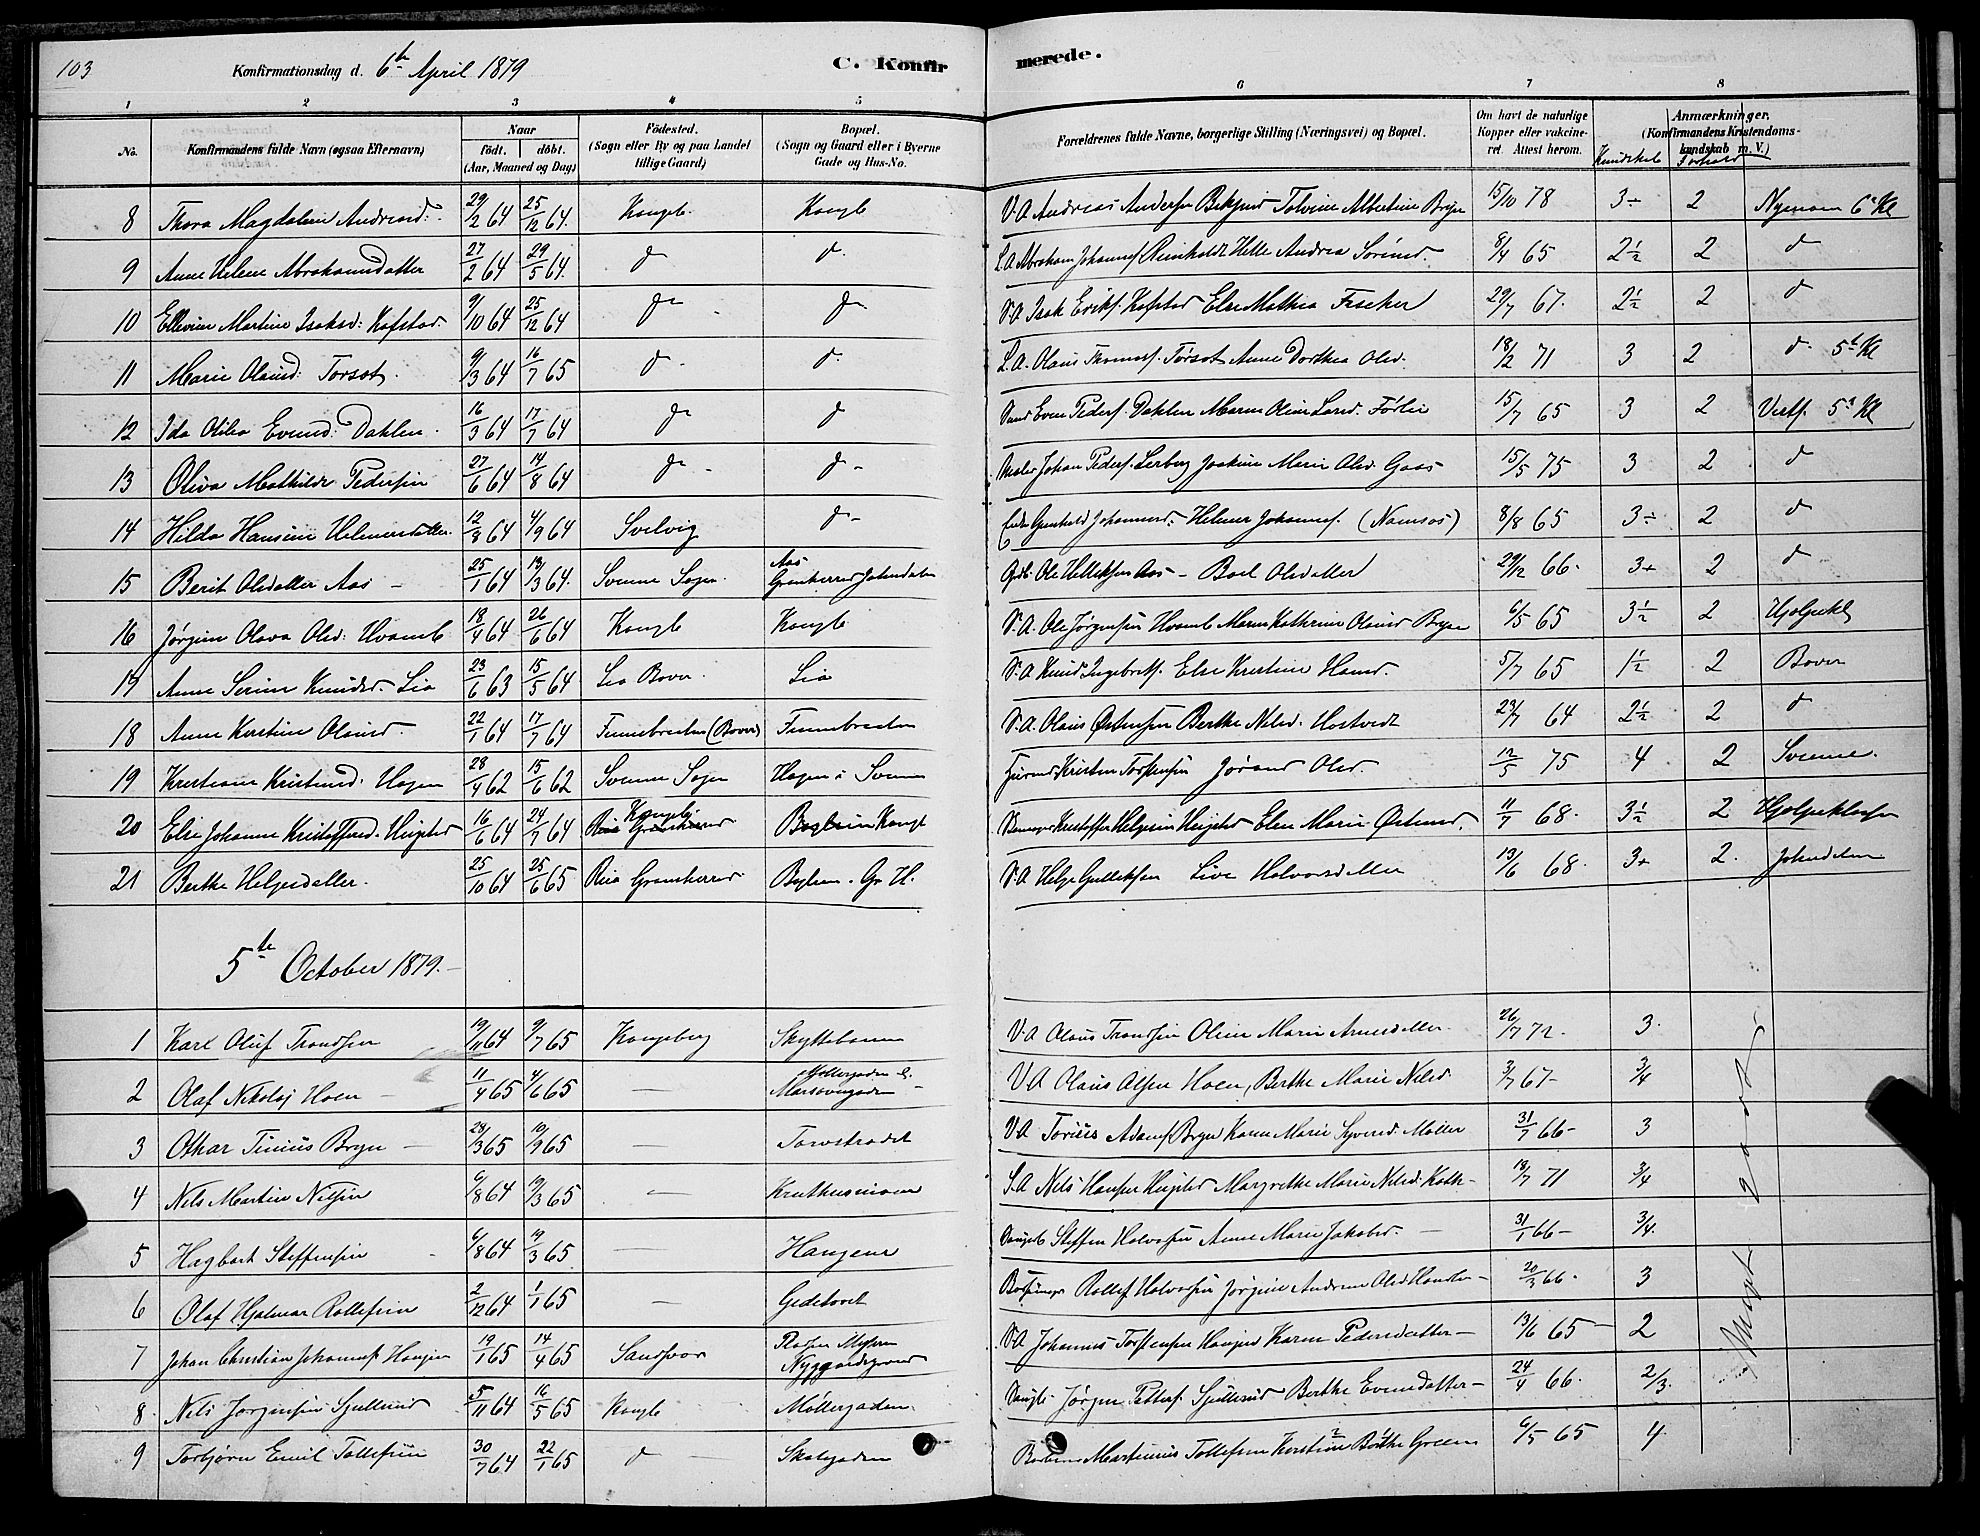 103
Konfirmationsdag d. 6te April 1879
C. Konfir
merede.
1 2 3 4 5 6 7 8
No. Konfirmandens fulde Navn (ogsaa Efternavn) Naar født, døbt. (Aar, Maaned og Dag) Fødested. (Sogn eller By og paa Landet tillige Gaard) Bopæl. (Sogn og Gaard eller i Byerne Gade og Hus-No. Forældrenes fulde Navne, borgerlige Stilling (Næringsvei) og Bopæl. Om havt de naturlige Kopper eller vakcineret. Attest herom. Anmærkninger. (Konfirmandens Kristendomskundskab m. V.) Kundskab Forhold
8 Thora Magdalene Andreasd: 29/2 64 25/12 64. Kongb. Kongb V.A Andreas Andersen Tolvine Albertine Bryn 15/10 78 3÷ 2 Nymoen 6te Kl
9 Anne Helene Abrahamsdatter 27/2 64 29/5 64. d d. L.A Abraham Johannes. Reinholdt Helle Andrea Sørensd. 8/4 65 2½ 2 d
10 Ellevine Martine Isaksd: Kofstad. 9/10 64 25/12 64 do do V.A Isak Eriks. Kofstad Else Mathea Fischer 29/7 67. 2½ 2 d
11 Marie Olausd: Torsot. 9/3 64 16/7 65 d d. L.A. Olaus Thomass. Torsot Anne Dorthea Olsd. 18/2 71 3 2 d 5te Kl
12 Ida Otilia Evensd: Dahlen. 16/3 64 17/7 64 do d Even Peders. Dahlen Maren Oline Larsd. 15/7 65 3 2 Vestf. 5te Kl
13 Oliva Mathilde Pedersen 27/6 64 14/8 64 do d Maler Johan Peders. Lerberg Joakine Marie Olsd. Gaas 15/5 75 3 2 d
14 Hilda Hansine Helmersdatter. 12/3 64 4/9 64 Svelvig d Gunhild Johannesd. Helmer Johanness. (Namsos) 8/8 65 3÷ 2 d
15 Berit Olsdatter Aas 25/1 64 13/3 64. Svenne Sogn. Aas Granherred Johndalen Gdb. Ole Helleksen Aas - Boel Olsdatter 29/12 66. 3+ 2 d
16 Jørgine Olava Olsd: Hvamb 18/4 64 26/6 64 Kongb Kongb V.A. Ole Jørgensen Hvamb Maren Kathrine Olausd Bryn 6/5 65 3½ 2 Hjelpekl
17 Anne Serine Knudsd. Lia 23/6 63 15/5 64 Lia Bover. Lia V.A Knud Ingebrets. Else Kristine Hansd. 5/7 65 1½ 2 Bover
18 Anne Kirstine Olausd. 22/1 64 17/7 64 Finnebraaten (Bover) Finnebraaten V.A. Olaus Østensen Berthe Nilsd. Hostvedt 23/7 64 2½ 2 d
19 Kristiane Kristensd. Hagen 28/4 62 15/6 62 Svenne Sogn Hagen i Svenne Kristen Torstensen Jørand Olsd. 12/5 75 4 2 Svenne.
20 Else Johanne Kristoffersd. Heigsted 16/6 64 24/7 64 Kongsbg Granherred Kongb Kristoffer Helgesen Heigsted Elen Marie Østensd. 11/7 68. 3½ 2 Hjelpeklassen
21 Berthe Helgesdatter. 25/10 64 25/6 65 Granherred. Gr H. V.A Helge Gulleksen Live Halvorsdatter 13/6 68. 3+ 2. Johndalen
5te October 1879.
1 Karl Oluf Trondsen 19/11 64 9/7 65 Kongsberg Skyttebanen V.A Olaus Trondsen Oline Marie Arnesdatter. 26/7 72. 3.
2 Olaf Nikolaj Hoen 11/4 65 4/6 65 — Møllergaden V.A Olaus Olsen Hoen, Berthe Marie Nilsd. 3/7 67- 3/4
3 Othar Tinius Bryn 23/3 65 10/9 65 — Torvstrædet V.A Torius Adams. Bryn Karen Marie Syversd. Møller 31/7 66- 3
4 Nils Martin Nilsen 6/8 64 19/3 65 — Kruthusmoen S.A Nils Hansen Heigsted Margrethe Marie Nilsd. 18/7 71 3/4
5 Hagbart Steffensen 6/8 64 19/3 65 — Haugene Steffen Halvorsen Anne Marie Jakobsd. 31/1 66- 3/4.
6 Olaf Hjalmar Rollefsen 2/12 64 1/1 65 — Gedetoret Rollef Halvorsen Jørgine Andrea Olsd. 20/3 66. 3
7 Johan Christian Johannes. Haugen 19/1 65 14/4 65 Sandsvær Nyggaardsgrend V.A Johannes Torstensen Haugen Karen Pedersdatter 13/6 65 2
8 Nils Jorgensen Sjullerud 25/11 64 16/5 65 Kongb Møllergaden Jørgen Petters. Sjullerud Berthe Evensdatter 24/4 66. 2/3.
9 Torbjørn Emil Tollefsen 30/7 64 22/1 65 d Skolegaden Martinius Tollefsen Kirstine Bothe Green 6/5 65 4